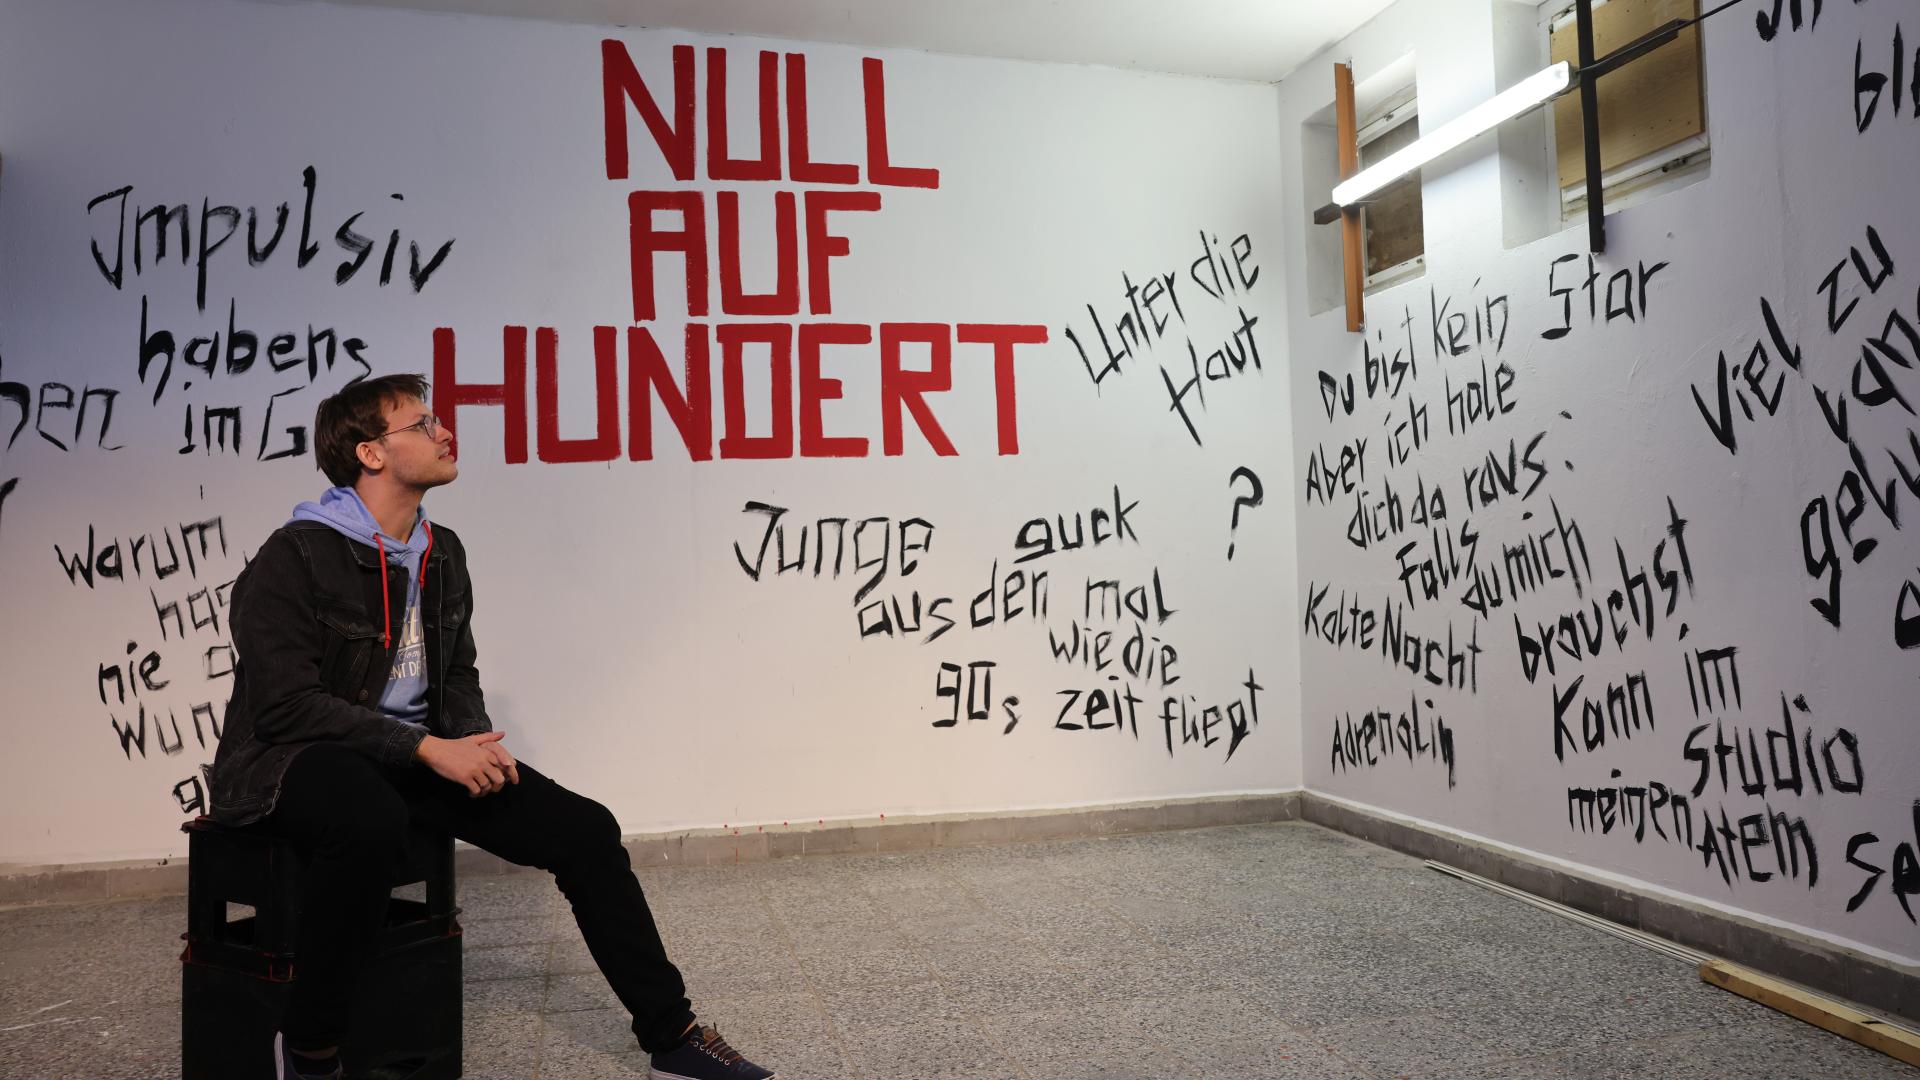 NULL
AUF
HUNDERT
Impulsiv
habens
im
warum
nie
Unter die
Haut
Junge guck ?
aus den mal
wie die
90s zeit fliegt
Du bist kein Star
Aber ich hole
dich da raus:
Falls du mich
brauchst
Kalte Nacht
Adrenalin
Kann im
studio
meinen Atem
Viel zu